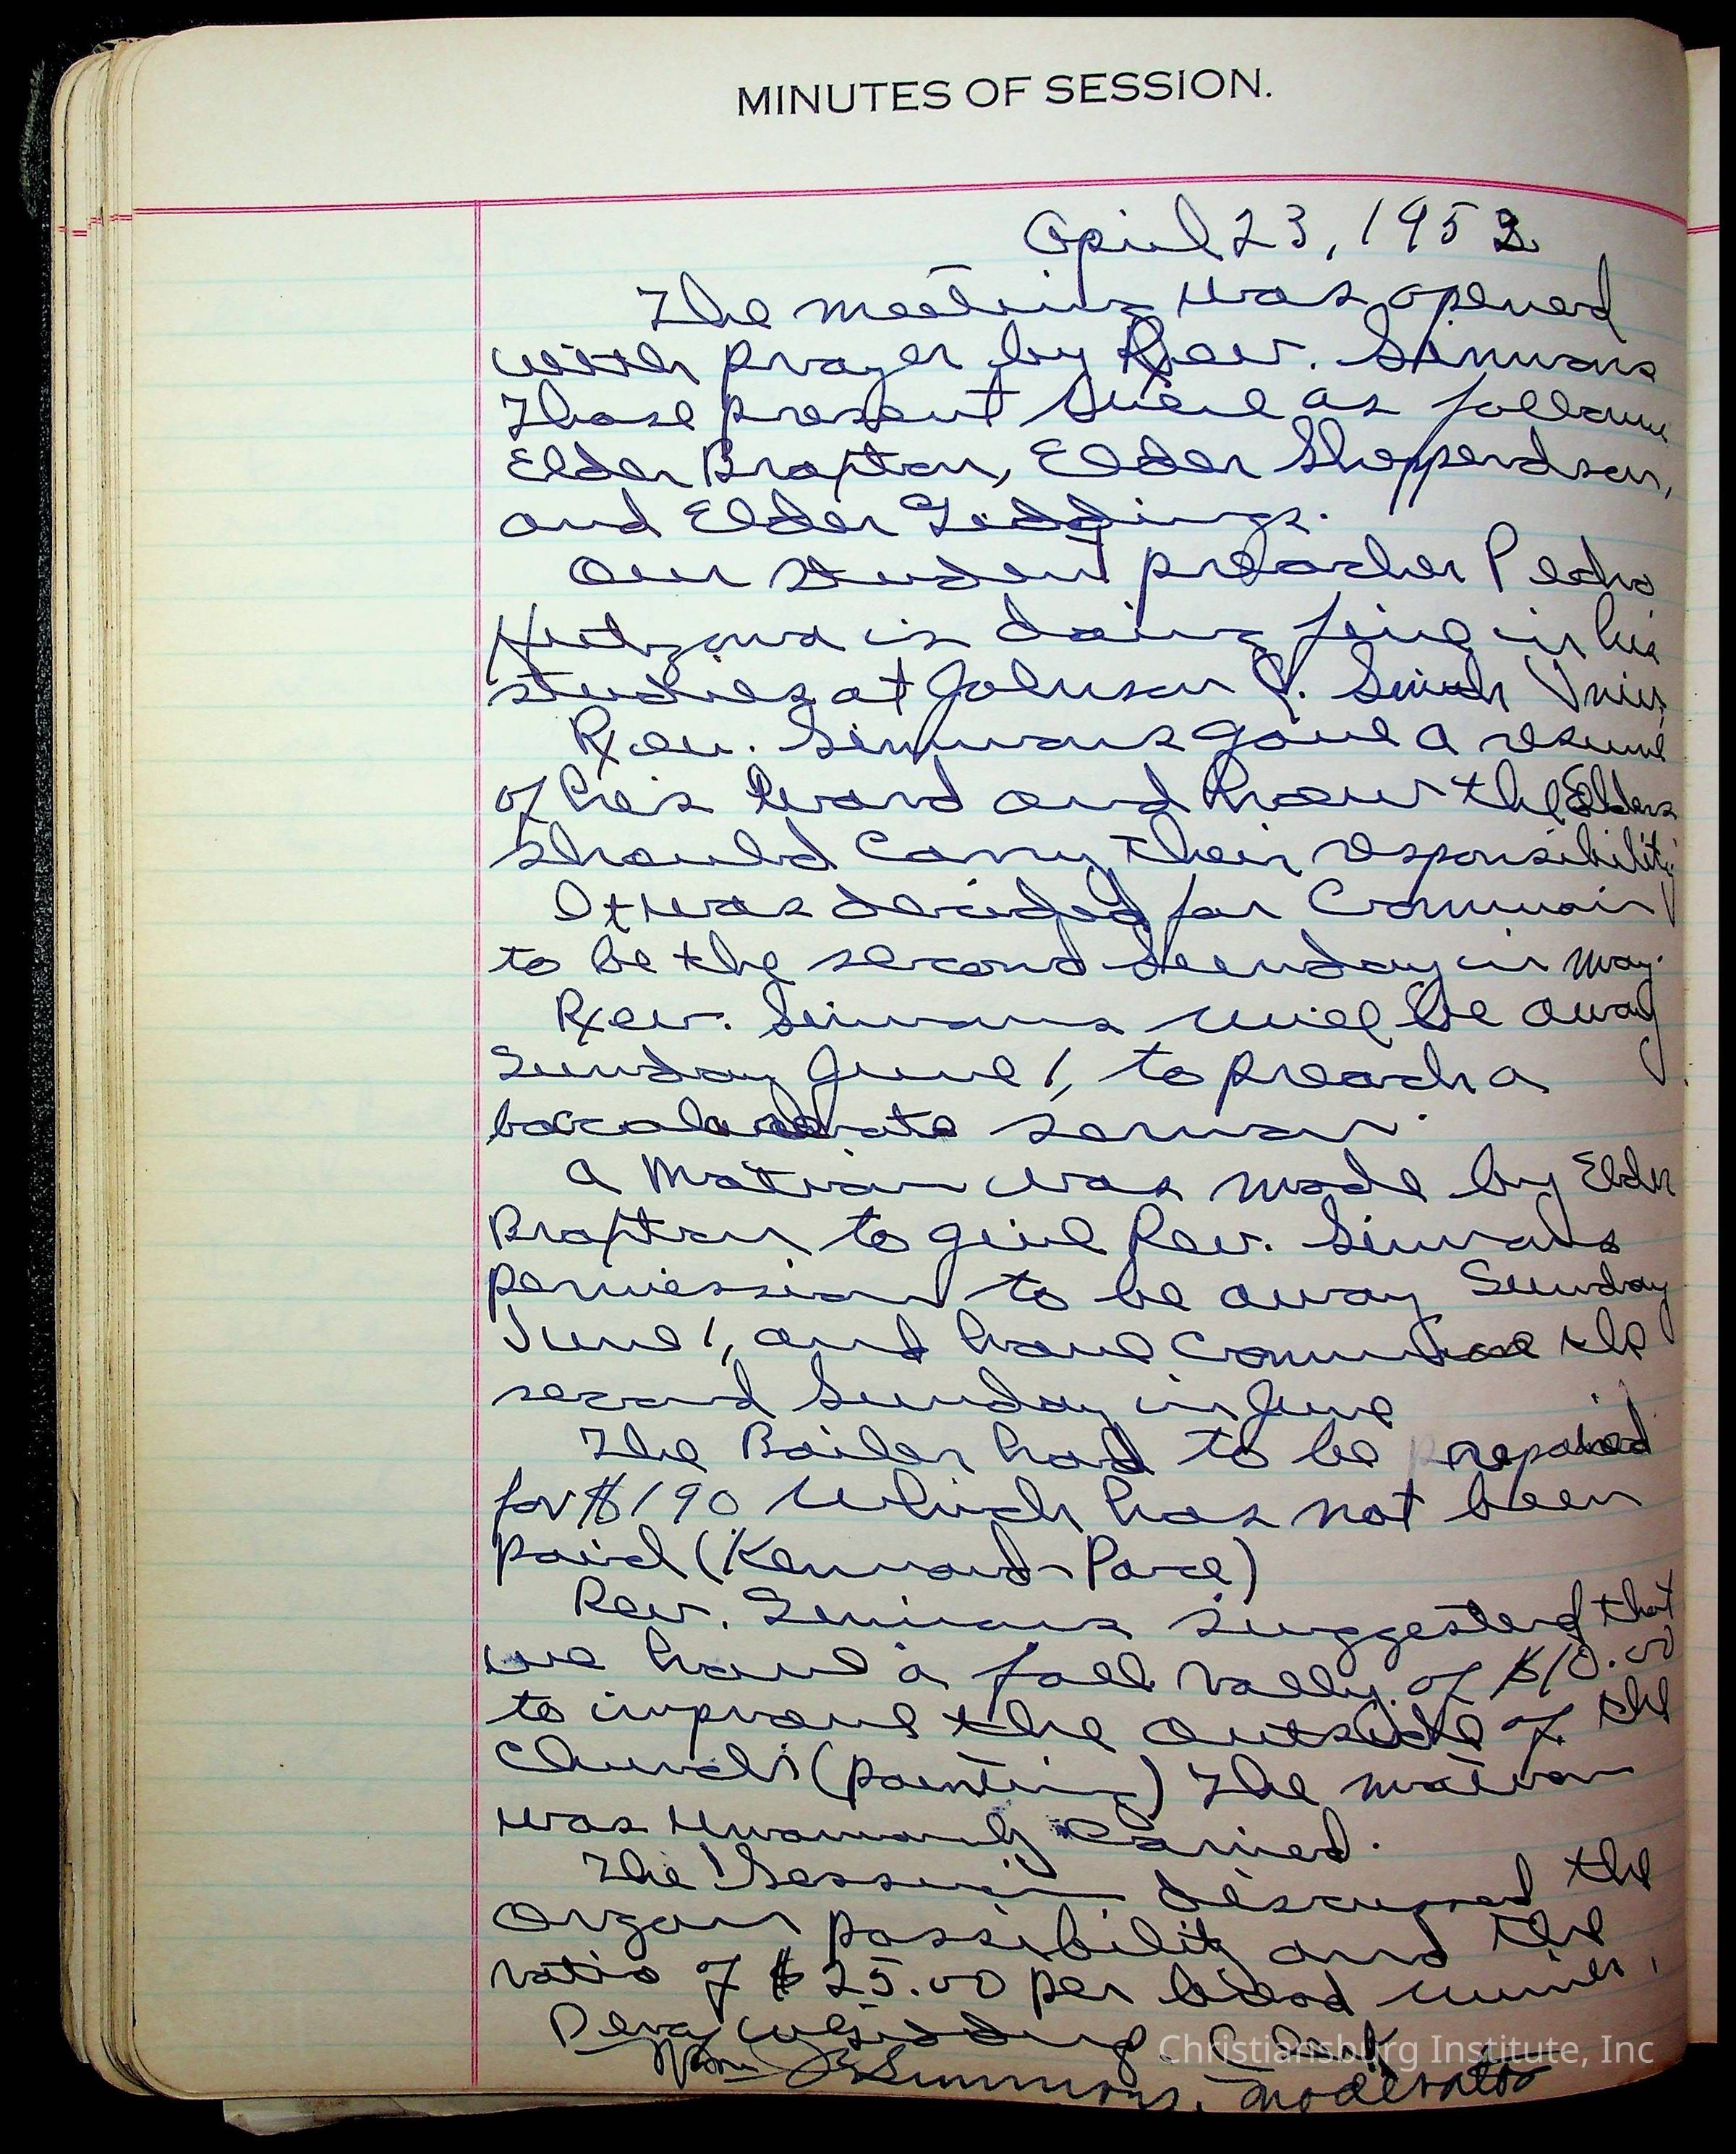 MINUTES OF SESSION.
April 23, 1952
The meeting was opened
with prayer by Rev. Simmons
Those present were as follows
Elder Brafton, Elder Shepperdson,
and Elder Giddings.
Our student preacher Pedro
is doing fine in his
studies at Johnson C. Smith Univ.
Rev. Simmons gave a resume
of his work and how the Elders
should carry their responsibility
It was decided for Communion
to be the second Sunday in May.
Rev. Simmons will be away
Sunday June 1, to preach a
sermon.
A motion was made by Elder
Brafton to give Rev. Simmons
permission to be away Sunday
June 1, and have Commune the
second Sunday in June
The Boiler had to be repaired
for $190 which has not been
paid (Kennard-Pace)
Rev. Simmons suggested that
we have a fall rally of $10.00
to improve the outside of the
Church (painting) The motion
was carried.
The Session discussed the
organ possibility and the
ratio of $25.00 per head
Giddings Clerk
Simmons, moderator
Christiansburg Institute, Inc